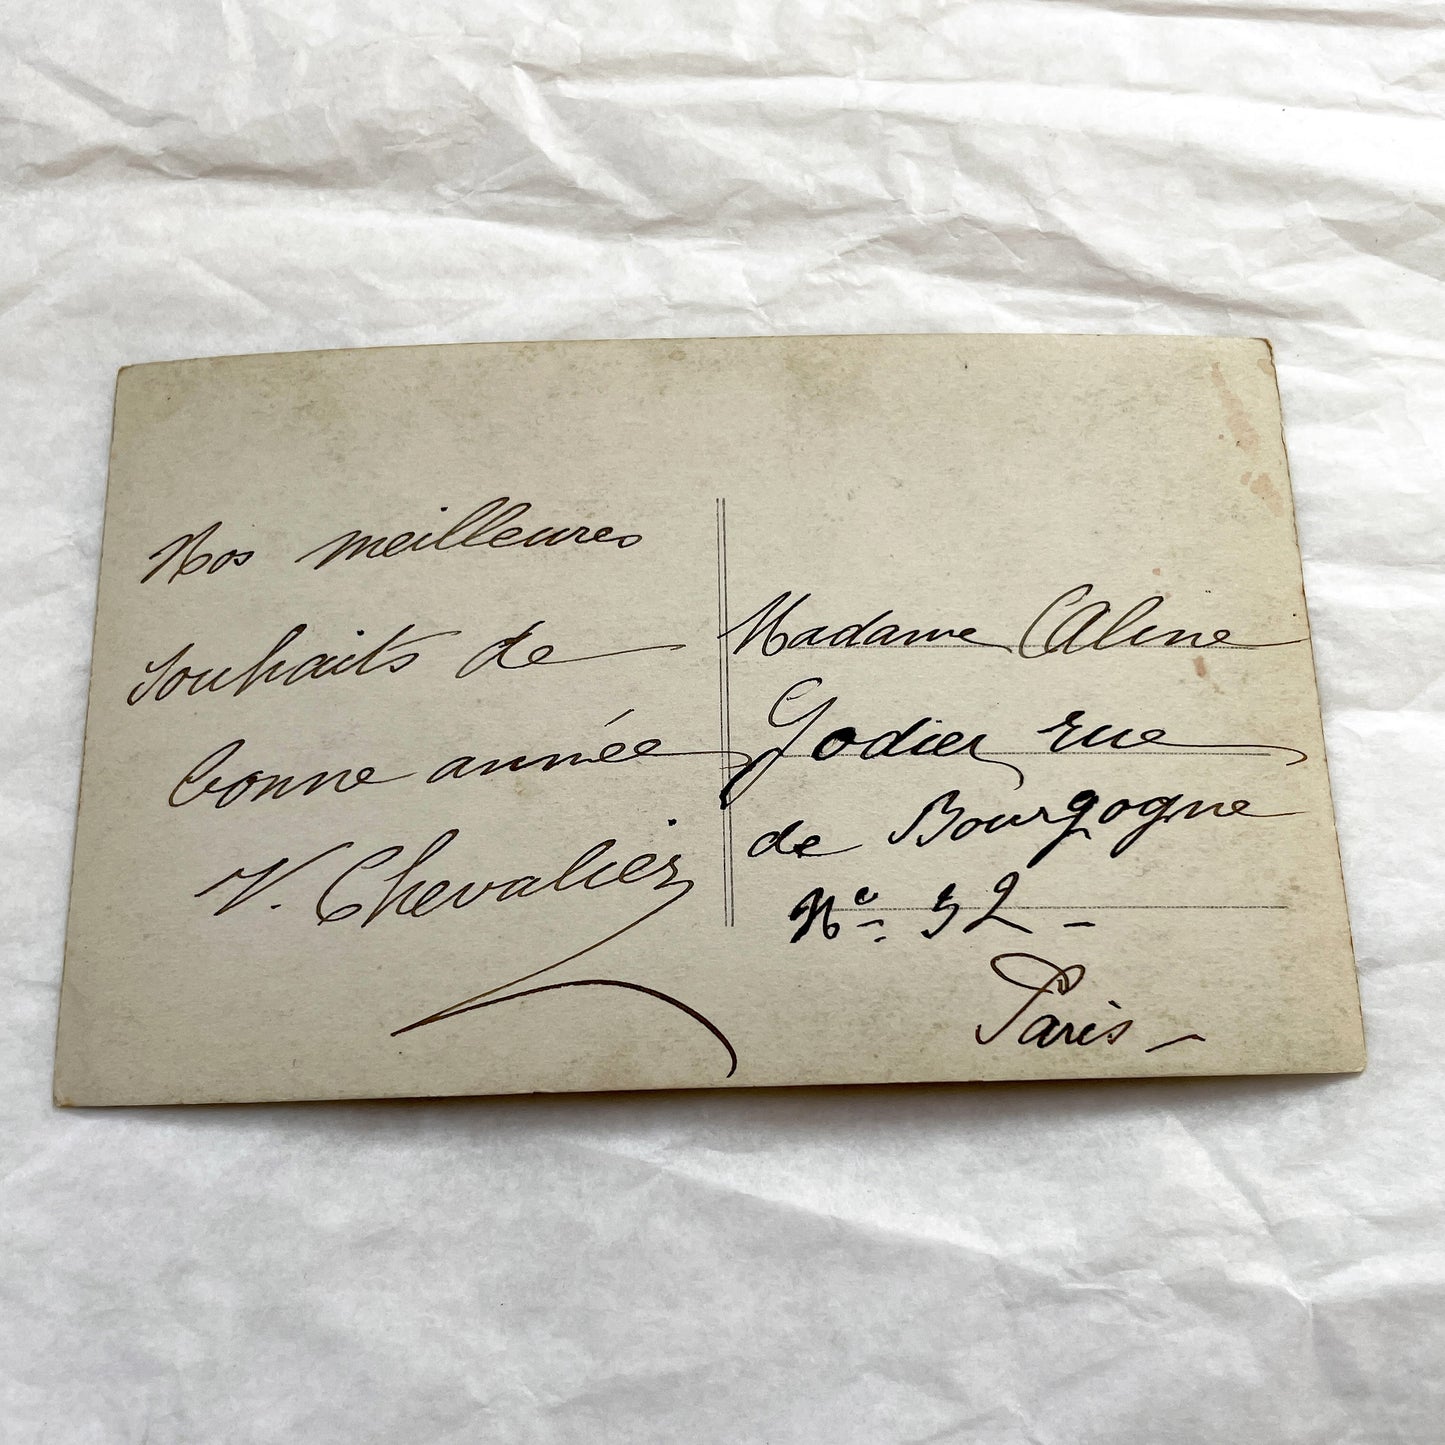 Nos meilleures
souhaits de
bonne année
V. Chevalier
Madame Aline
Godier rue
de Bourgogne
No. 52 -
Paris -